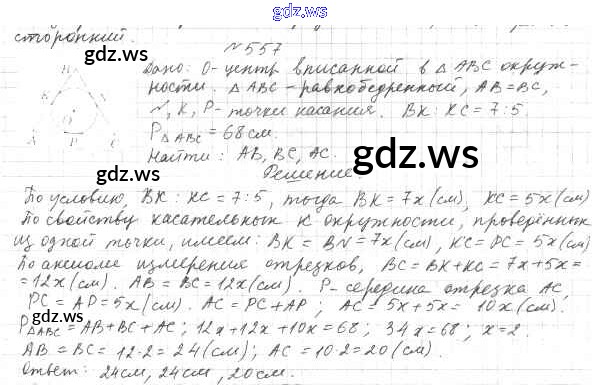 gdz.ws
сторонний.
gdz.ws gdz.ws
N557
Дано: О-центр вписанной в △ABC окруж-
ности. △ABC - равнобедренный, AB=BC,
N, K, P - точки касания. BK:KC=7:5.
P△ABC = 68см.
Найти: AB, BC, AC.
gdz.ws
Решение
По условию, BK:KC=7:5, тогда BK=7x(см), KC=5x(см)
По свойству касательных к окружности, проведённых
из одной точки, имеем: BK=BN=7x(см), KC=PC=5x(см)
По аксиоме измерения отрезков, BC=BK+KC=7x+5x=
=12x(см). AB=BC=12x(см). P-середина отрезка AC,
PC=AP=5x(см). AC=PC+AP; AC=5x+5x=10x(см).
gdz.ws gdz.ws
P△ABC=AB+BC+AC; 12x+12x+10x=68; 34x=68; x=2.
AB=BC=12·2=24(см); AC=10·2=20(см).
Ответ: 24см, 24см, 20см.
gdz.ws